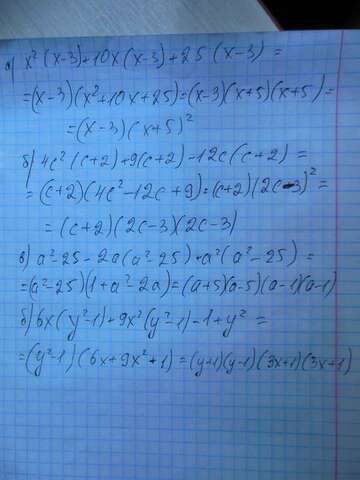 а) x² (x-3)+10x(x-3)+25(x-3) =
=(x-3)(x²+10x+25)=(x-3)(x+5)(x+5)=
=(x-3)(x+5)²
б) 4c²(c+2)+9(c+2)-12c(c+2) =
= (c+2)(4c²-12c+9)=(c+2)(2c-3)² =
= (c+2)(2c-3)(2c-3)
в) a²-25-2a(a²-25)+a²(a²-25) =
=(a²-25)(1+a²-2a)=(a+5)(a-5)(a-1)(a-1)
б) 6x(y²-1)+9x²(y²-1)-1+y² =
=(y²-1)(6x+9x²+1)=(y+1)(y-1)(3x+1)(3x+1)